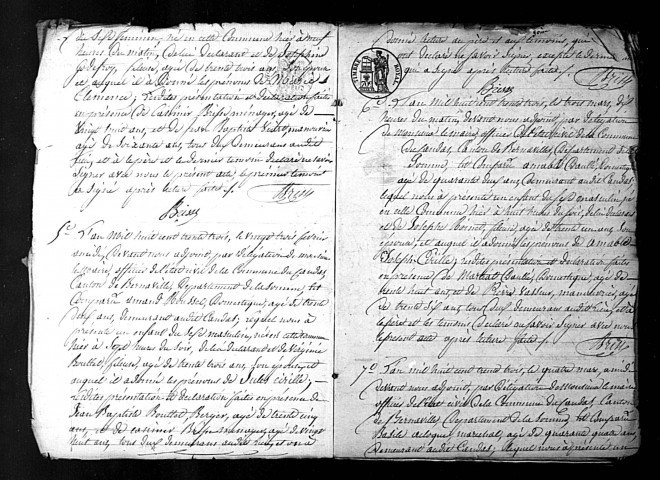 du sexe féminin, né en cette Commune hier à neuf
heures du matin, de lui Déclarant et de Josephine
fileuse, agée de trente trois ans, son épouse
et auquel il a donné les prénoms de Marie
Clemence; lesdites présentation et declaration faites
en présence de Casimir Bize ménager, agé de
vingt huit ans, et de Jean Baptiste manouvrier
agé de Soixante ans, tous deux demeurans audit
lieu, et le père et le dernier temoin declaré ne savoir
signer avec nous le présent acte, le premier temoin
a Signé après lecture faite.
Bize
5e L'an Mil huit cent trente trois, le vingt trois fevrier
à midi, Devant nous adjoint, par Délégation de monsieur
le Maire, officier de l'état civil de la Commune de Candas,
Canton de Bernaville Département de la Somme, est
Comparu amand Bonnetier, agé de trente
deux ans, demeurant audit Candas; lequel nous a
présenté un enfant du Sexe masculin, né en cette commune
hier à Sept heures du Soir, de lui Declarant et de Virginie
Bouthel, fileuse, agée de trente trois ans, Son épouse, et
auquel il a donné les prénoms de Jules Cirille;
Lesdites présentation et declaration faites en présence de
Jean Baptiste Bouthel Berger, agé de trente cinq
ans, et de Casimir Bize ménager, agé de vingt
huit ans, tous deux demeurans audit lieu, et ont
donné lecture au père et aux temoins, qui
ont declaré ne savoir signer, excepté le dernier
qui a Signé après lecture faite.
TIMBRE ROYAL
Bize
6e L'an Mil huit cent trente trois, le trois mars, dix
heures du matin, devant nous adjoint, par délégation
de Monsieur le maire, officier de l'état civil de la Commune
de Candas, Canton de Bernaville, Département de la
Somme, est Comparu amable Dault, Bonnetier,
agé de quarante deux ans, demeurant audit Candas,
lequel nous a présenté un enfant du Sexe masculin, né
en cette Commune hier à huit heures du soir, de lui declarant
et de Josephe Bonnet, fileuse, agée de trente un ans, Son
épouse, et auquel il a donné les prénoms de amable
Joseph Cirille; lesdites présentation et declaration faites
en présence de Martial Dault, Bonnetier, agé de
trente huit ans, et de Pierre Vasseur, manouvrier, agé
de trente six ans, tous deux demeurans audit lieu, et
le père et les temoins declaré ne savoir Signer avec nous
le présent acte après lecture faite.
7e L'an mil huit cent trente trois, le quatre mars, à midi
devant nous adjoint, par Délégation de Monsieur le maire
officier de l'état civil de la Commune de Candas, Canton
de Bernaville, Département de la Somme, est Comparu
Basile marechal, agé de quarante quatre ans,
demeurant audit Candas; lequel nous a présenté un